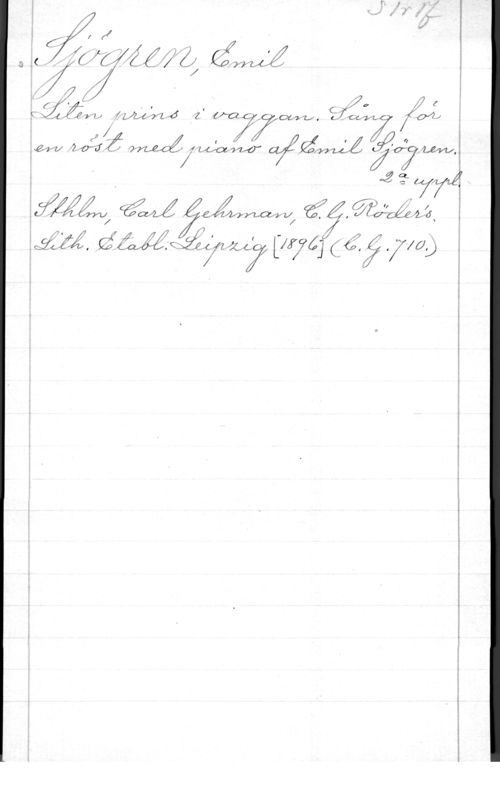 S1r1f
Sjögren, Emil
Liten prins i vaggan. Sång för
en röst med piano af Emil Sjögren.
2a uppl.
Sthlm, Carl Gehrman, C. G. Röder's.
Lith. Etabl. Leipzig [1896] (C. G. 710.)